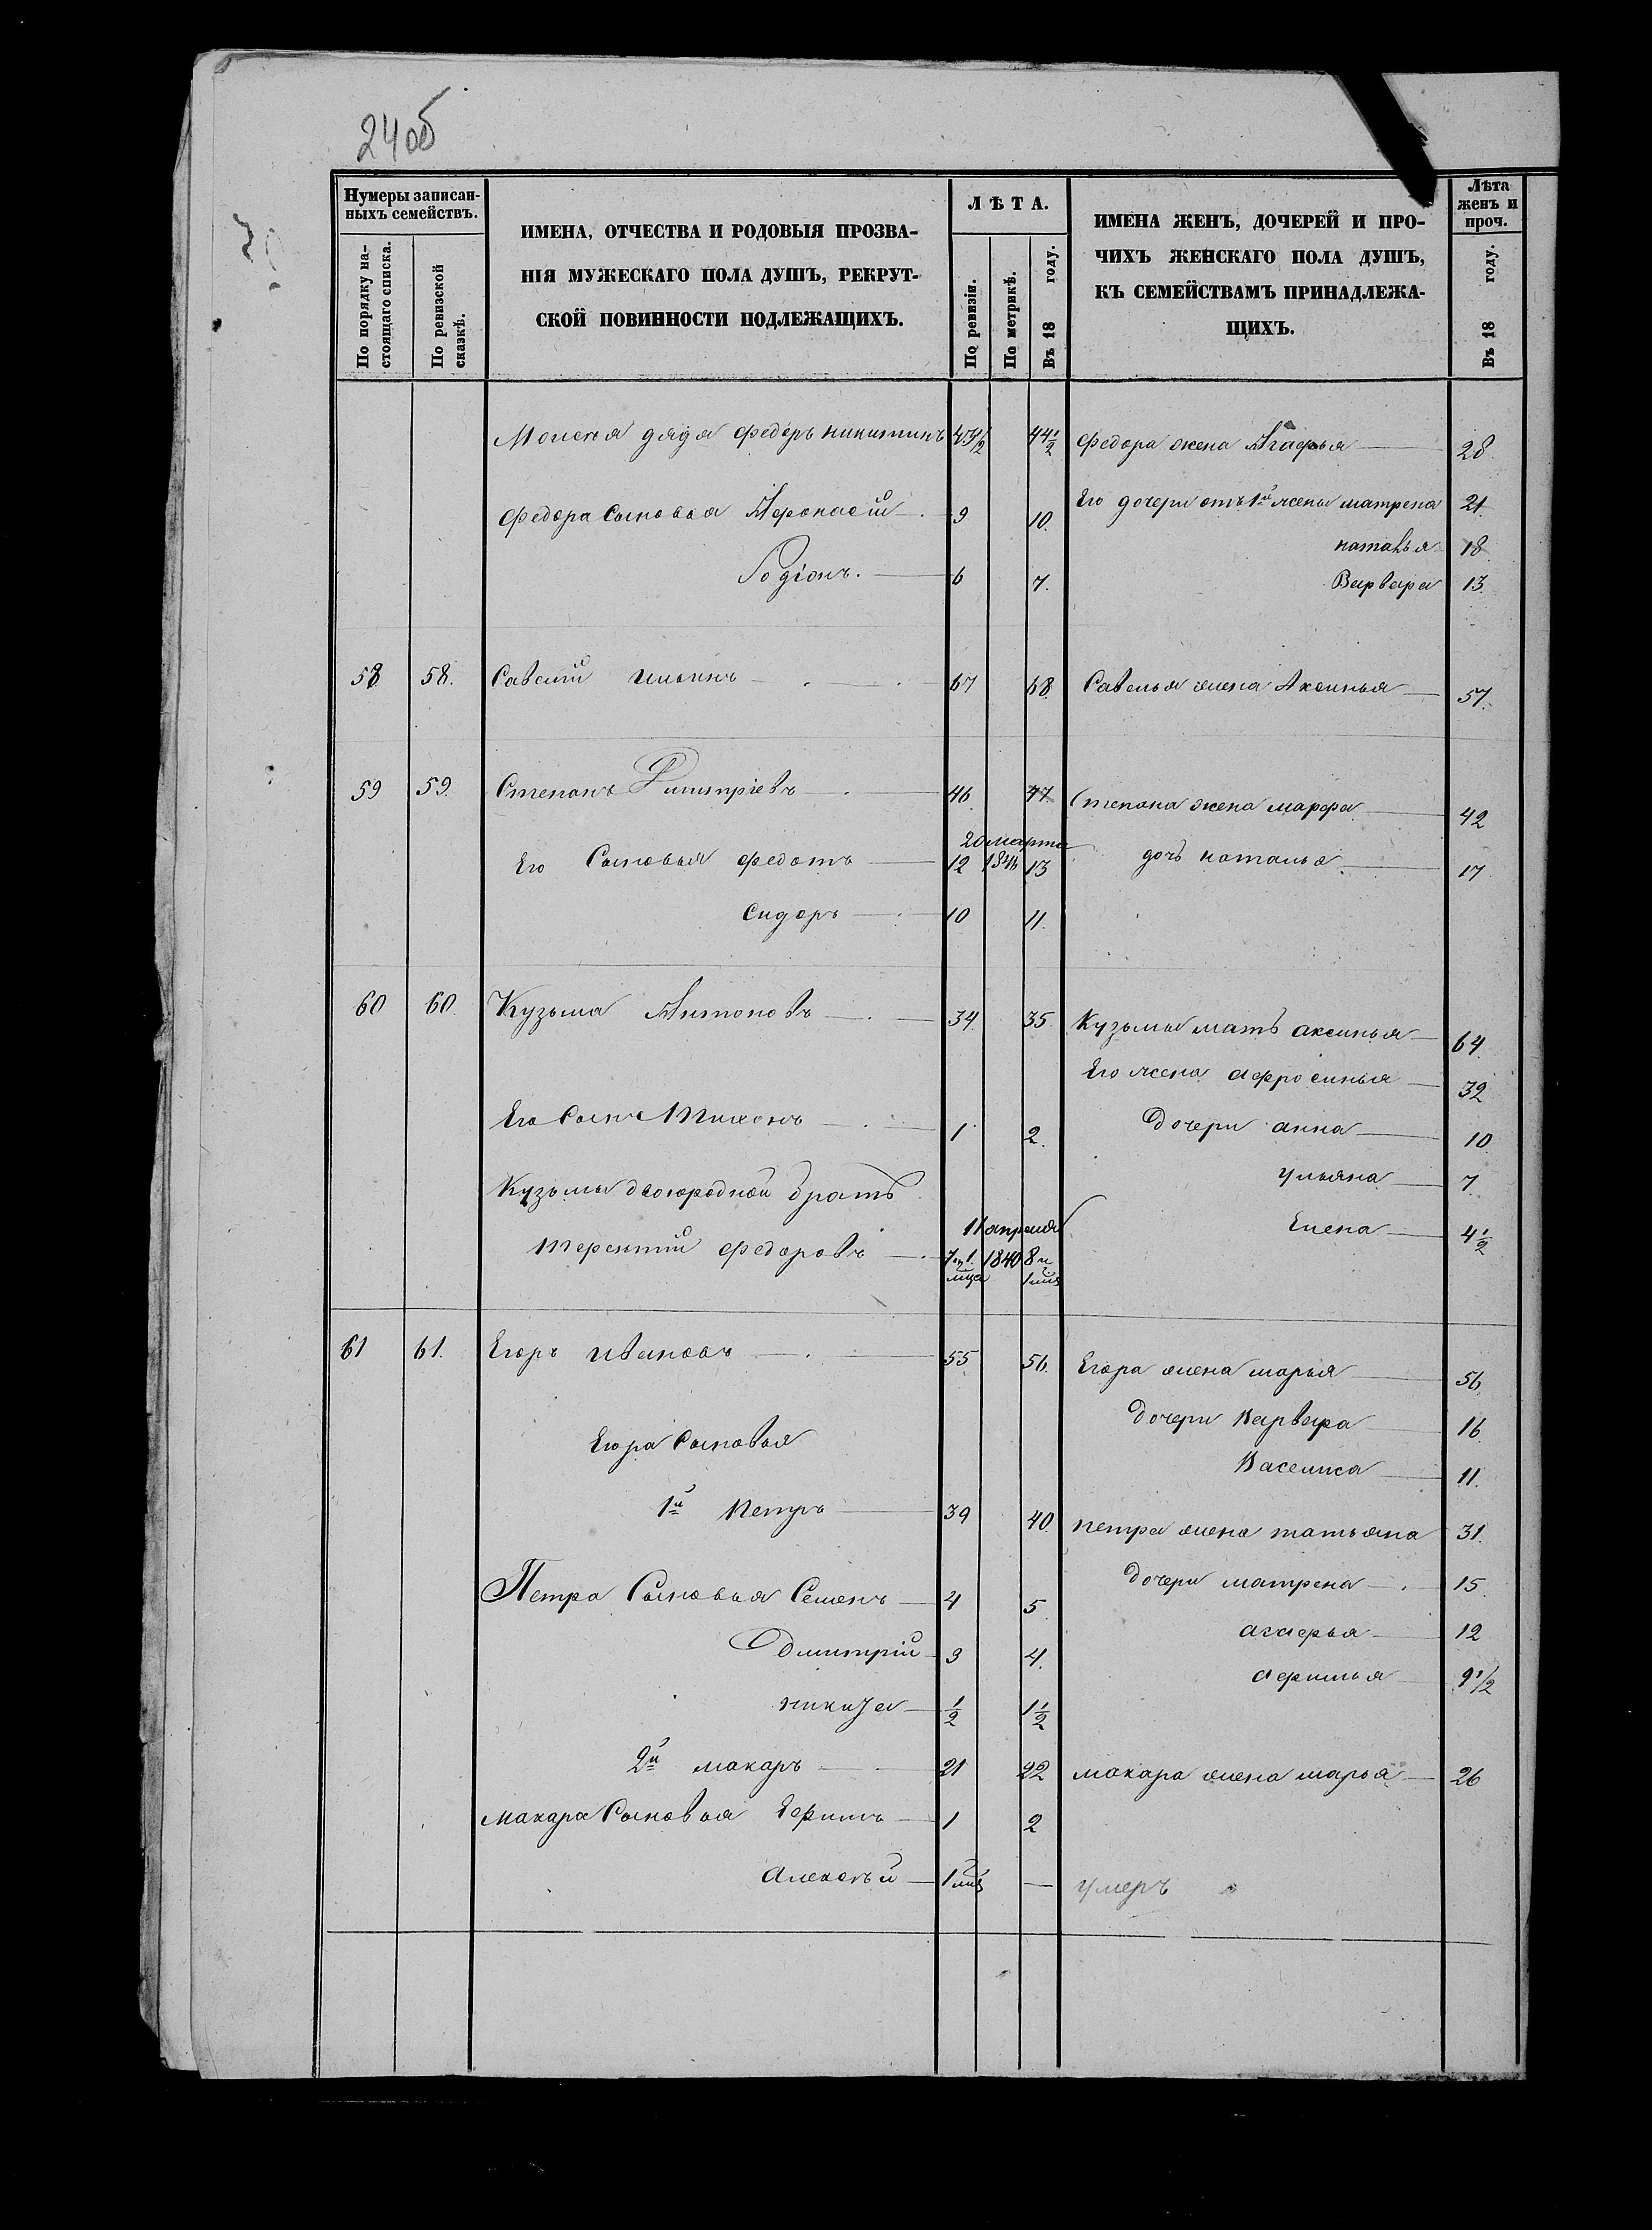 24об
Нумеры записан-
ныхъ семействъ.
По порядку на-
стоящаго списка.
По ревизской
сказкѣ.
ИМЕНА, ОТЧЕСТВА И РОДОВЫЯ ПРОЗВА-
НІЯ МУЖЕСКАГО ПОЛА ДУШЪ, РЕКРУТ-
СКОЙ ПОВИННОСТИ ПОДЛЕЖАЩИХЪ.
ЛѢТА.
По ревизіи.
По метрикѣ.
Въ 18 году.
ИМЕНА ЖЕНЪ, ДОЧЕРЕЙ И ПРО-
ЧИХЪ ЖЕНСКАГО ПОЛА ДУШЪ,
КЪ СЕМЕЙСТВАМЪ ПРИНАДЛЕЖА-
ЩИХЪ.
Лѣта
женъ и
проч.
Въ 18 году.
Моисея дядя Федоръ никитинъ 43 1/2 44 1/2 Федора жена Агафья 28
Федора Сыновья Афонасій 9 10. Его дочери отъ 1й жены матрена 21
наталья 18
Родіонъ. 6 7. Варвара 13
58 58. Савелій Ильинъ 67 68 Савелья жена Аксинья 57.
59 59. Степанъ Димитріевъ 46 47 Степана жена марфа 42
20 марта
Его Сыновья федотъ 12 1846 13 дочь наталья 17
Сидоръ 10 11.
60 60. Кузьма Антоновъ 34. 35. Кузьмы мать аксинья 64
Его жена афросинья 32
Его Сынъ Тихонъ 1 2. Дочери анна 10
Кузьмы двоюродной братъ ульяна 7
11 апреля Елена 4 1/2
Терентий федоровъ 7 и 1 мца 1840 8 и 1 мца
61 61. Егоръ ивановъ 55 56. Егора жена марья 56
Дочери Варвара 16
Егора Сыновья
Василиса 11.
1й Петръ 39 40. петра жена татьяна 31.
Петра Сыновья Семенъ 4 5 Дочери матрена 15
агафья 12
Дмитрій 3 4.
афимья 9 1/2
никита 1/2 1 1/2
2й макаръ 21 22 макара жена марья 26
макара Сыновья Ефимъ 1 2
Алексѣй 1 мца — умеръ